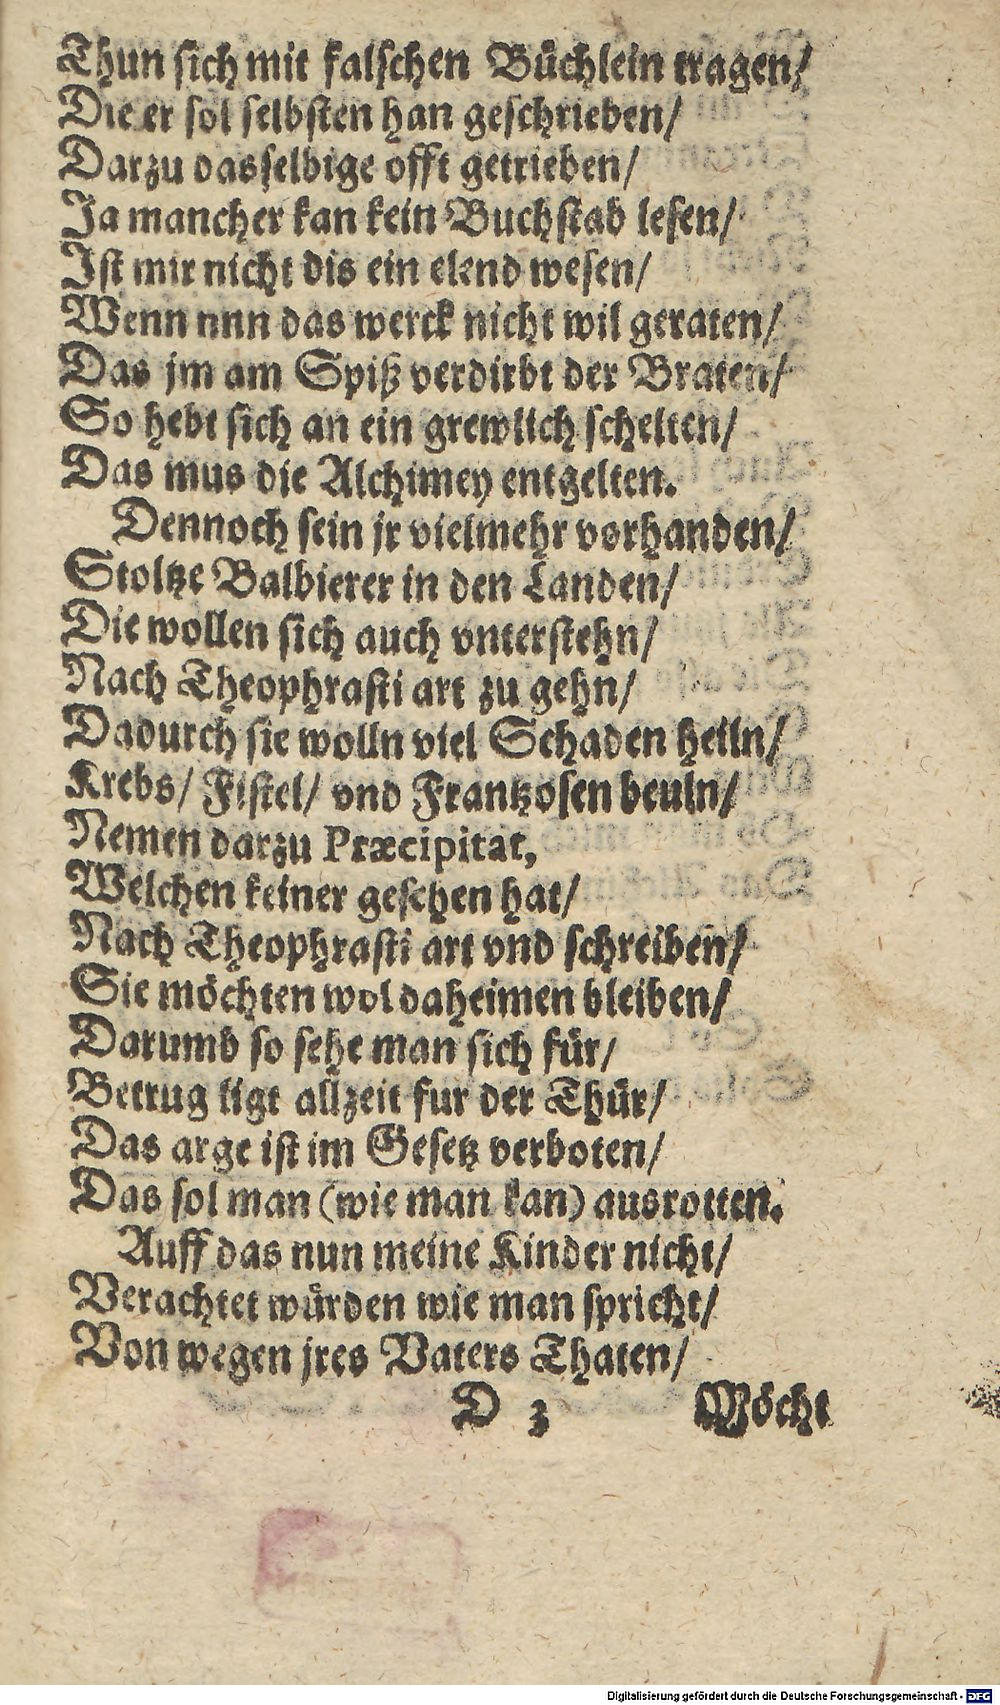 Thun sich mit falschen Büchlein tragen/
Die er sol selbsten han geschrieben/
Darzu dasselbige offt getrieben/
Ja mancher kan kein Buchstab lesen/
Ist mir nicht dis ein elend wesen/
Wenn nnn das werck nicht wil geraten/
Das jm am Spiß verdirbt der Braten/
So hebt sich an ein grewlich schelten/
Das mus die Alchimey entgelten.
Dennoch sein jr vielmehr vorhanden/
Stoltze Balbierer in den Landen/
Die wollen sich auch vnterstehn/
Nach Theophrasti art zu gehn/
Dadurch sie wolln viel Schaden heiln/
Krebs/ Fistel/ vnd Frantzosen beuln/
Nemen darzu Præcipitat,
Welchen keiner gesehen hat/
Nach Theophrasti art vnd schreiben/
Sie möchten wol daheimen bleiben/
Darumb so sehe man sich für/
Betrug ligt allzeit fur der Thür/
Das arge ist im Gesetz verboten/
Das sol man (wie man kan) ausrotten.
Auff das nun meine Kinder nicht/
Verachtet würden wie man spricht/
Von wegen jres Vaters Thaten/
D 3 Möcht
Digitalisierung gefördert durch die Deutsche Forschungsgemeinschaft - DFG